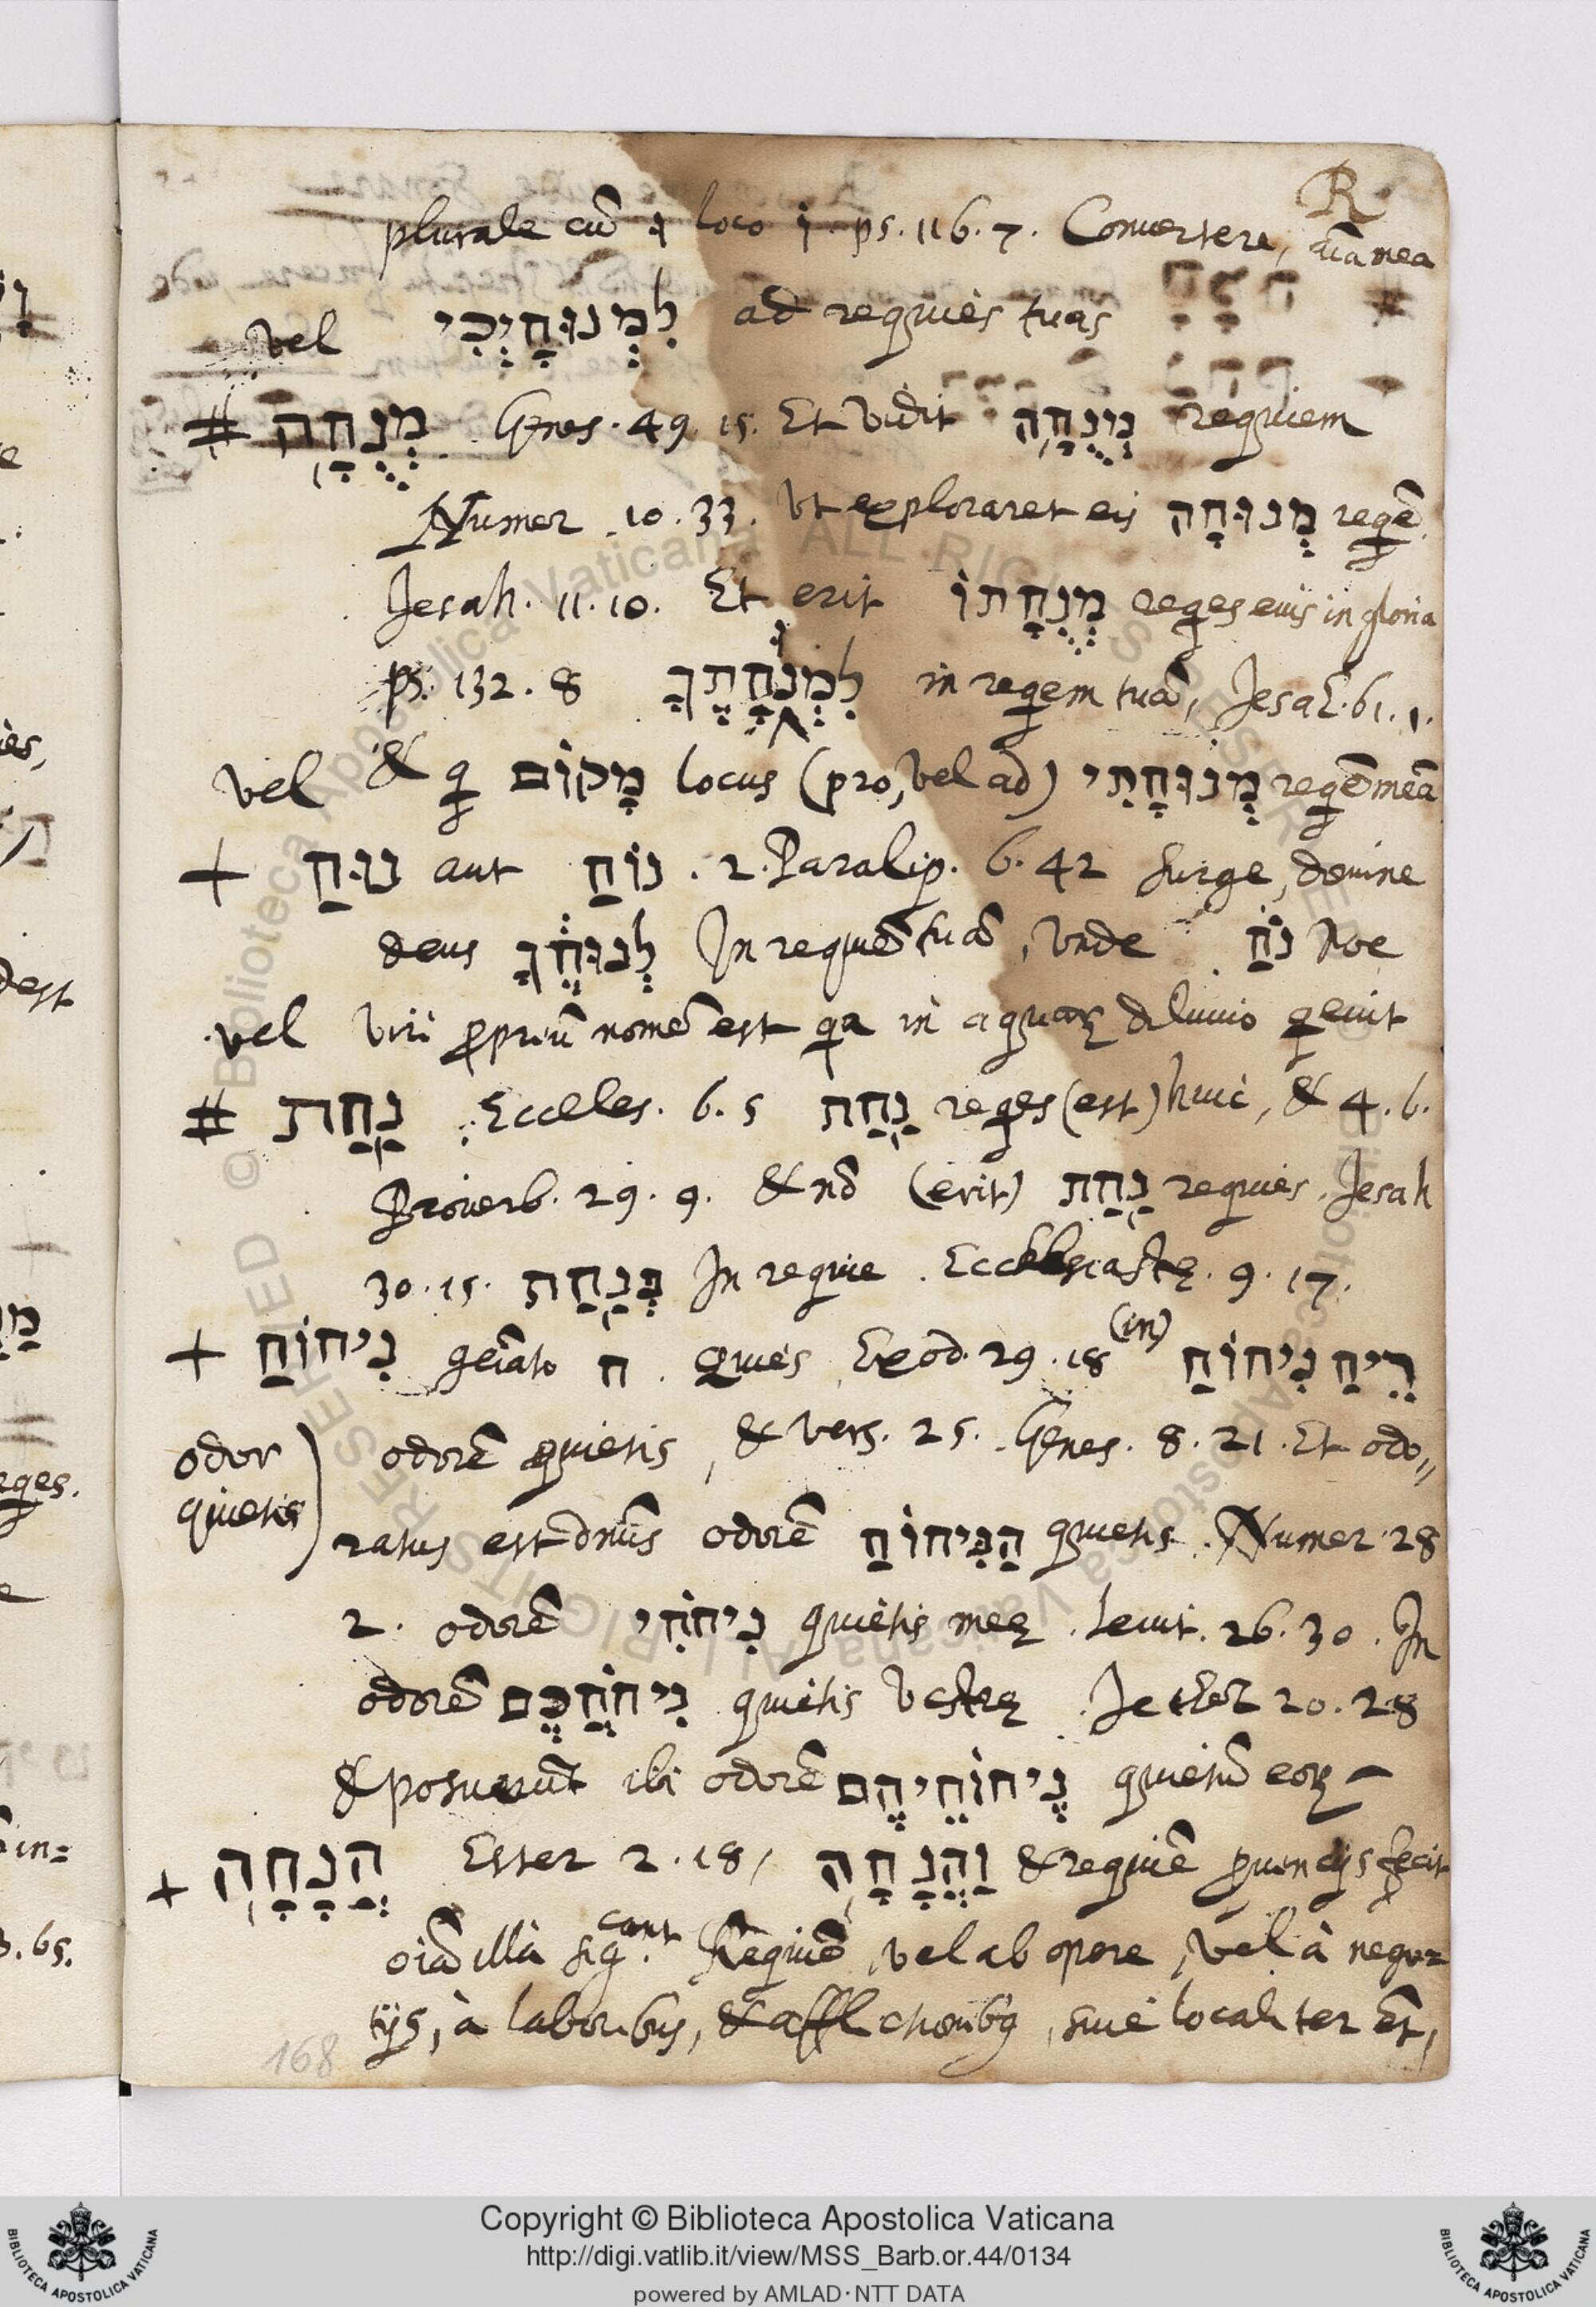 R
plurale cū וּ loco וֹ. ps. 116. 7. Convertere, aīa mea
vel לִמְנוּחָיְכִי ad requiēs tuas
# מְנֻחָה Genes. 49. 15. Et vidit מְנֻחָה requiem
Numer. 10. 33. Vt exploraret eis מְנוּחָה reqē
Jesah. 11. 10. Et erit מְנֻחָתוֹ reqes eius in gloria
ps. 132. 8 לִמְנֻחָתֶךָ in reqem tuā, Jesah. 61. 1.
vel & q מָקוֹם locus (pro, vel ad) מְנוּחָתִי reqēmeā
+ נוּחַ aut נוֹחַ. 2. Paralip. 6. 42 Surge, domine
deus לְנוּחֶךָ In requiē tuā, Vnde נֹחַ Noe
vel Viri propriū nomē est qa in aquarꝝ diluuio qeuit
# נַחַת Eccles. 6. 5 נַחַת reqes (est) huic, & 4. 6.
Proverb. 29. 9. & nō (erit) נַחַת requies. Jesah
30. 15. בְּנַחַת In requie. Ecclesiastę. 9. 17.
+ נִיחוֹחַ gēiato ח. Quies, Exod. 29. 18 (in) רֵיחַ נִיחוֹחַ
odor odorē quietis, & vers. 25. Genes. 8. 21. Et odo„
quietis ratus est dn̄us odorē הַנִּיחוֹחַ quietis. Numer 28
2. odorē נִיחֹחִי quietis meę. Levit. 26. 30. In
odorē נִיחֹחֲכֶם quietis vestrę. 20. 28
& posuerūt ibi odorē נִיחוֹחֵיהֶם quietū eorꝝ
+ הֲנָחָה Ester 2. 18, וַהֲנָחָה & requiē fecit
oīa illa sig.cant Requiē, vel ab opere, vel à nego=
tijs, à laboribus, & afflictionibꝰ, siue localiter
168
Copyright © Biblioteca Apostolica Vaticana
http://digi.vatlib.it/view/MSS_Barb.or.44/0134
powered by AMLAD·NTT DATA